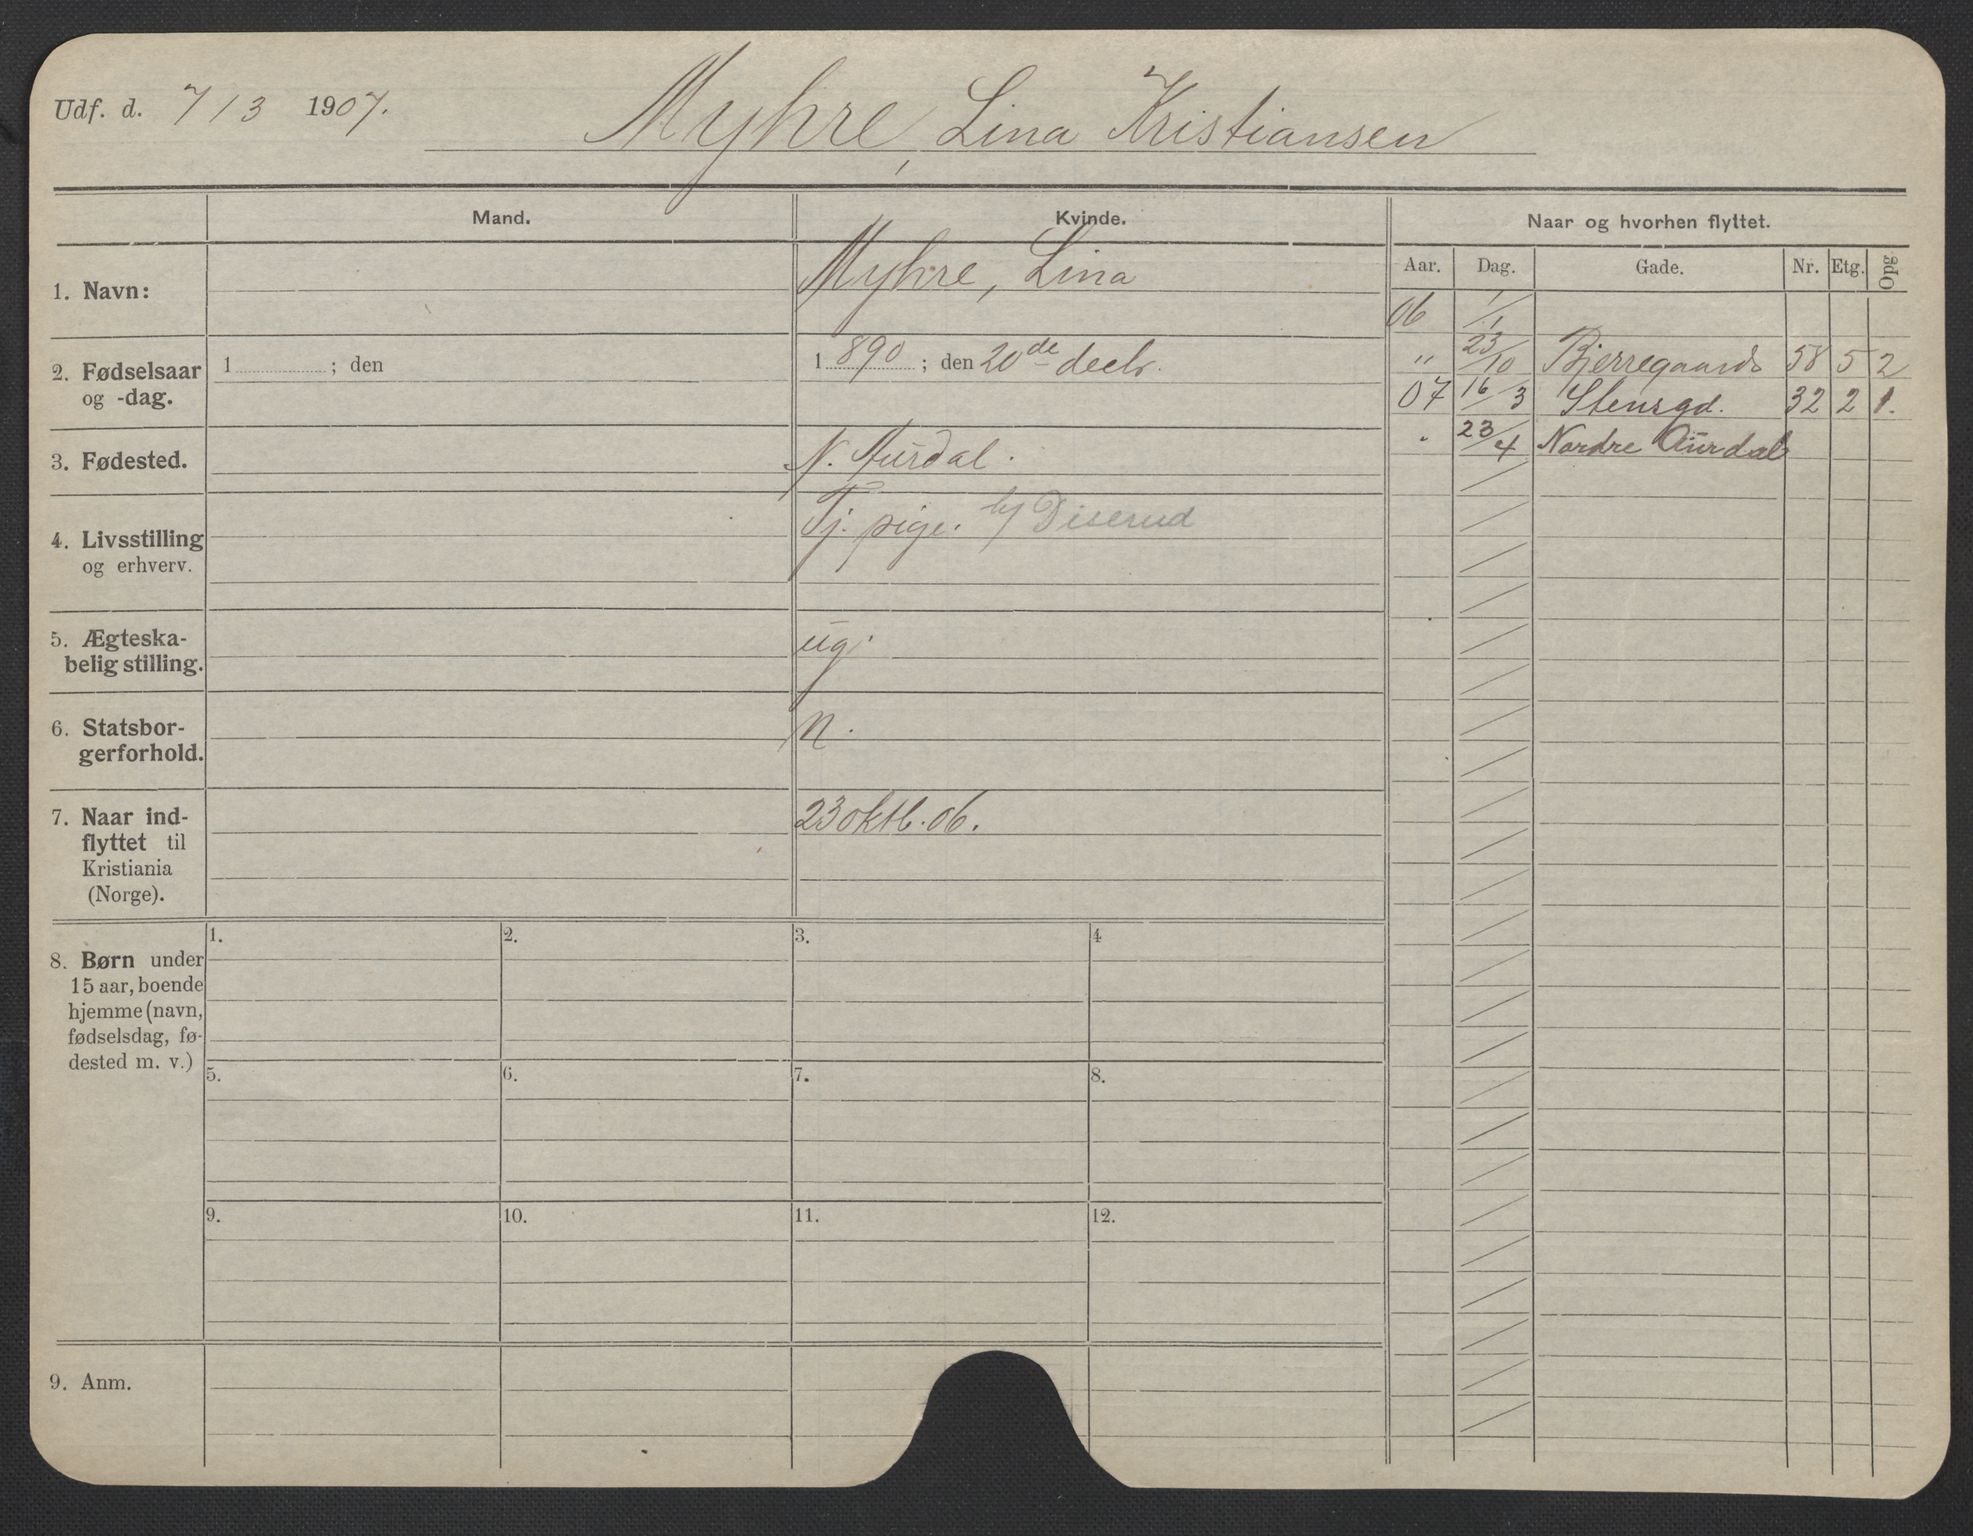 Udf. d. 7/3 1907. Myhre, Lina Kristiansen
Mand. Kvinde. Naar og hvorhen flyttet.
Aar. Dag. Gade. Nr. Etg. Opg
1. Navn: Myhre, Lina
06 1/1
2. Fødselsaar og -dag. 1 ; den 1890 ; den 20de decbr.
" 23/10 Bjerregaards 58 5 2
07 16/3 Stensgd. 32 2 1.
" 23/4 Nordre Aurdal
3. Fødested. N. Aurdal.
4. Livsstilling og erhverv. Tj. pige. h/ Diserud
5. Ægteska-
belig stilling. ug.
6. Statsbor-
gerforhold. n.
7. Naar ind-
flyttet til
Kristiania
(Norge). 23 oktb. 06.
8. Børn under
15 aar, boende
hjemme (navn,
fødselsdag, fø-
dested m. v.)
1. 2. 3. 4
5. 6. 7. 8.
9. 10. 11. 12.
9. Anm.